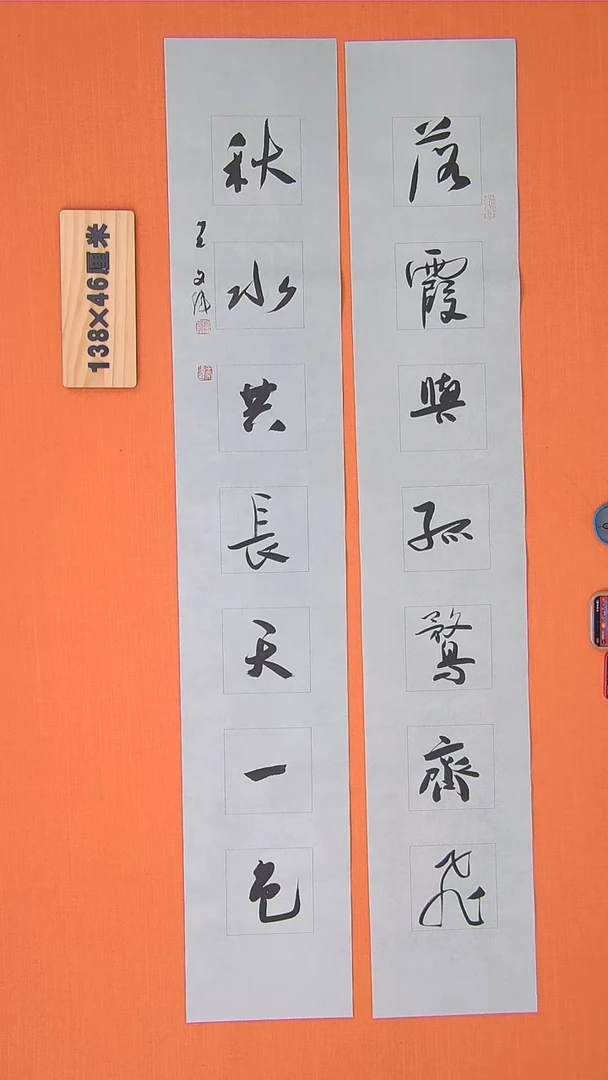 落霞與孤鶩齊飛
秋水共長天一色
138×46厘米